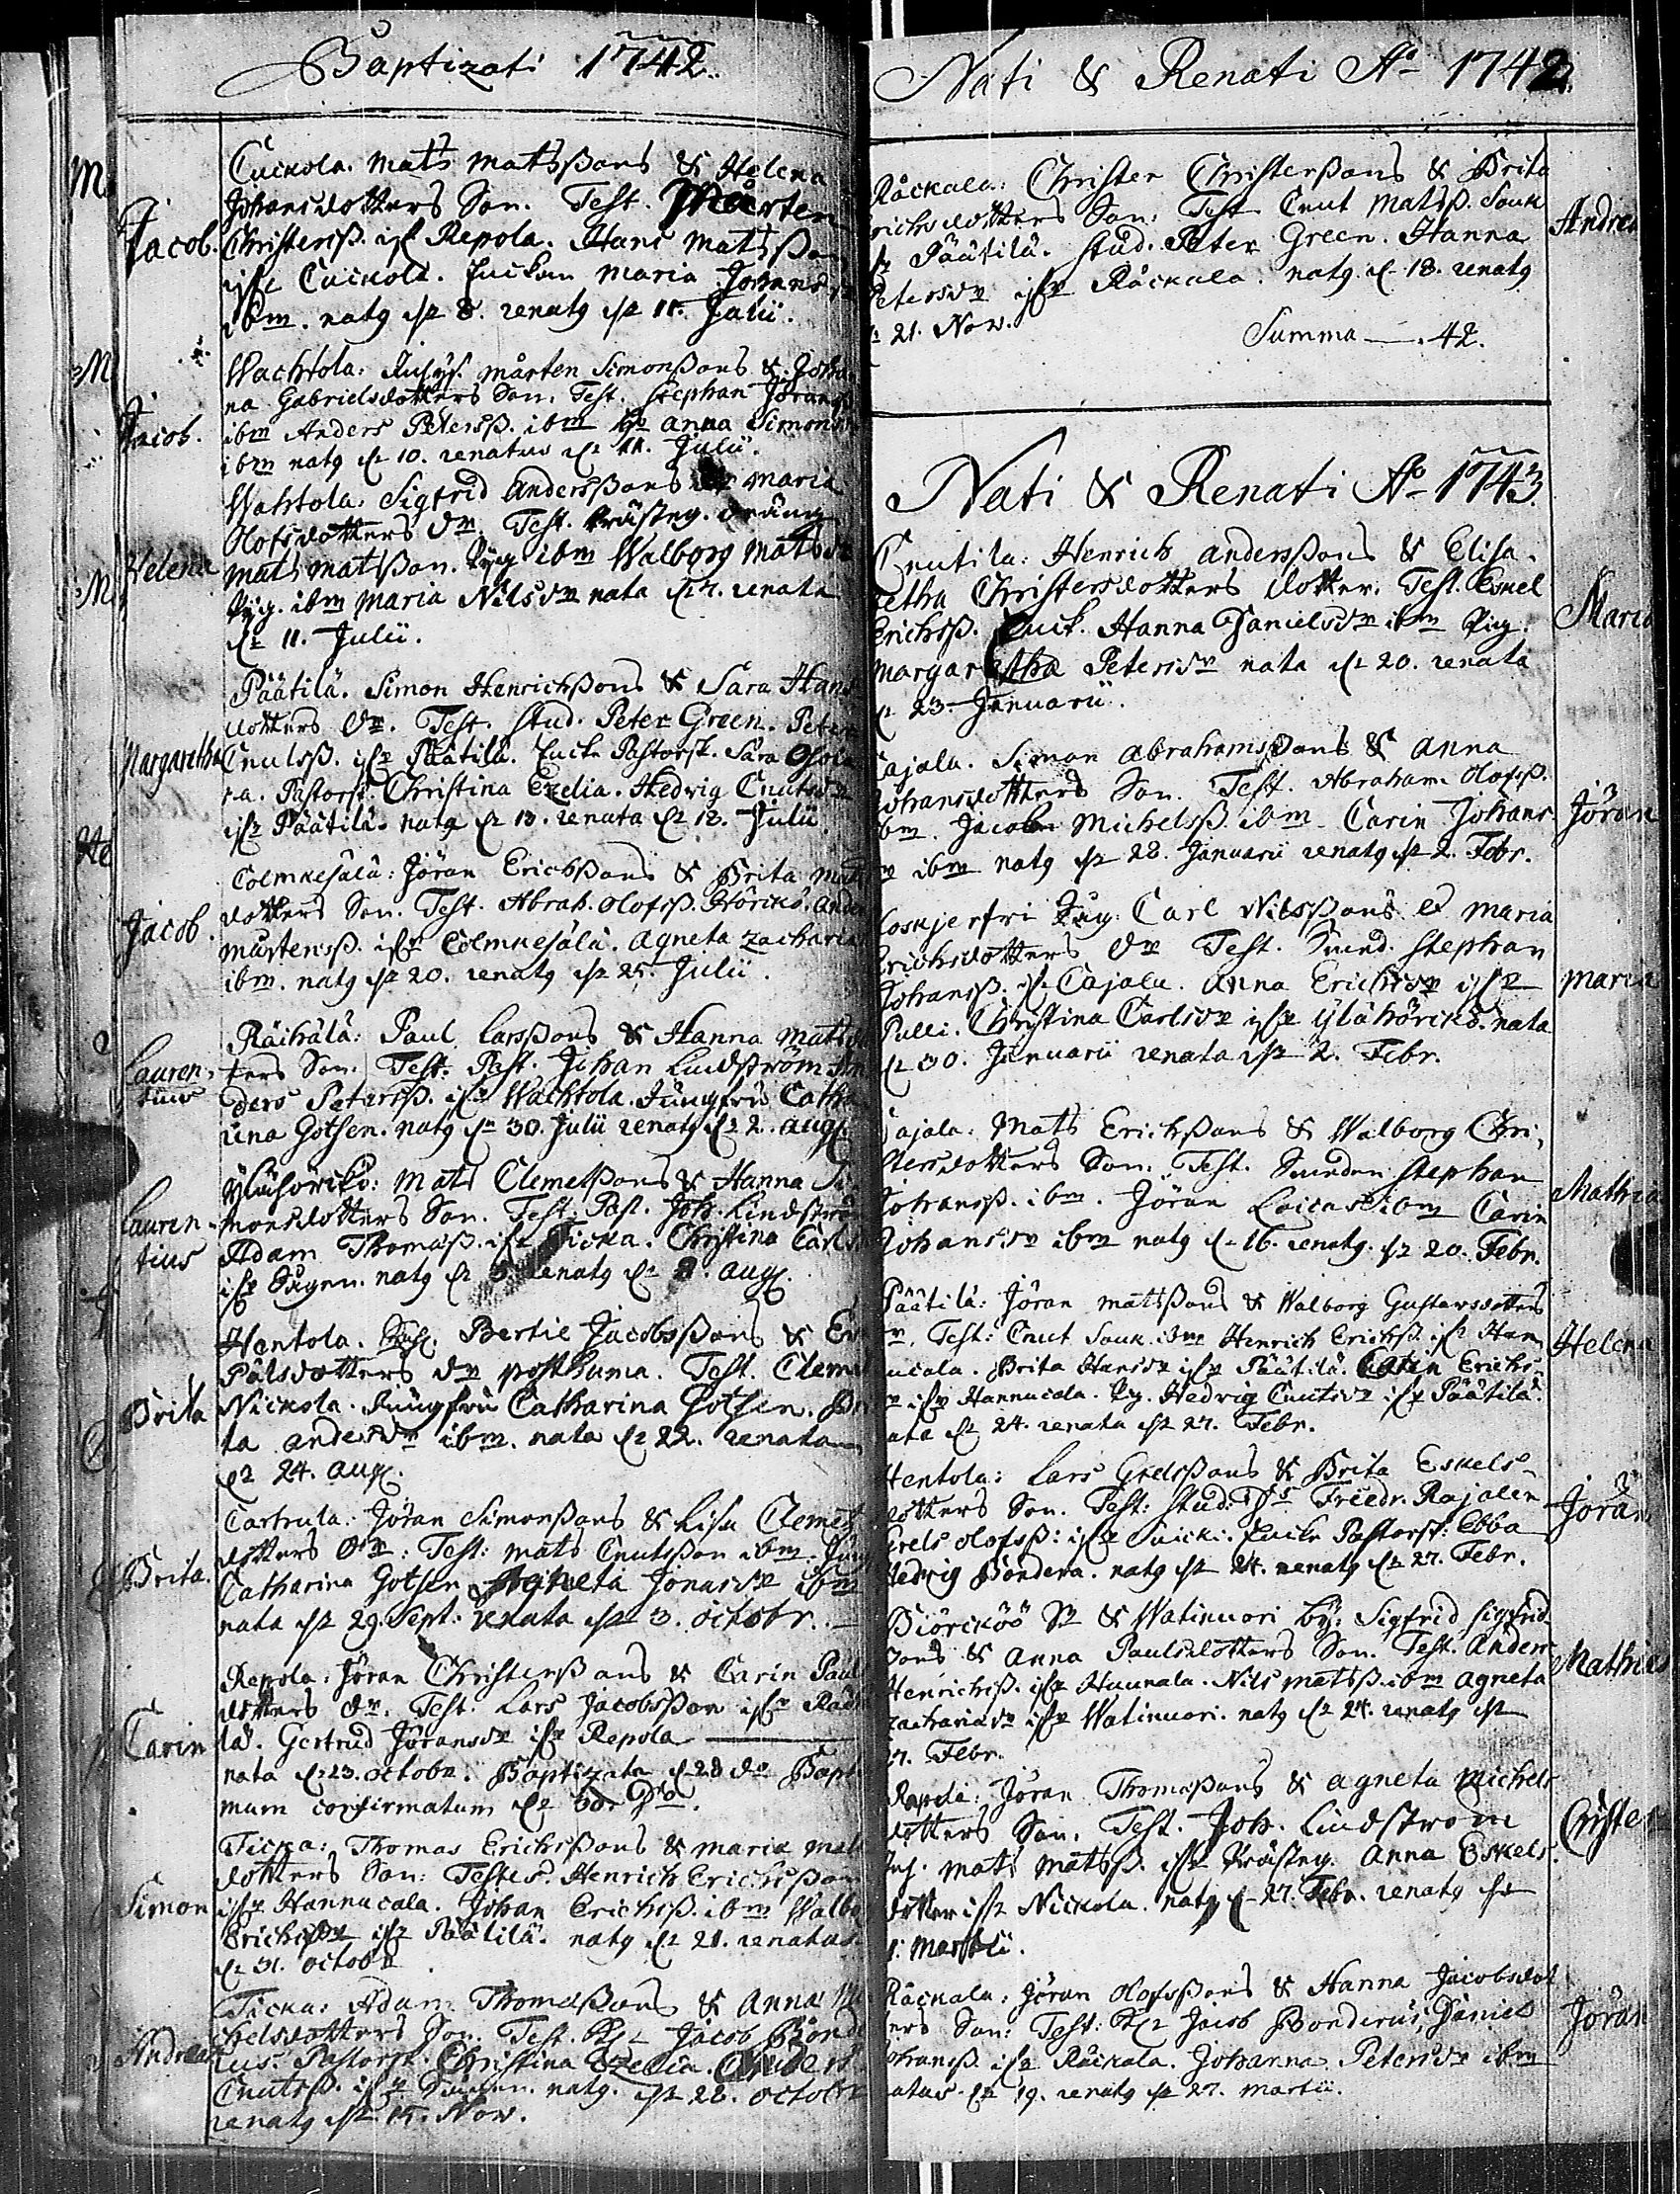 Baptizati 1742.
Cuckola. Mats Matsßons & Helena
Johansdotters Son. Test. Mårten
Jacob. Christersß. ifr Repola. Hans Matsßon
ifr Cuckola. Enckan Maria Johansdr
ibm. natg d. 8. renatg d. 11. Julii.
Wachtola. Mårten Simonßons & Johan
na Gabrielsdotters Son. Test. Stephan Jöransß
Jacob. ibm Anders Petersß. ibm Anna Simonsdr
ibm natg d. 10. renatus d. 11. Julii.
Wahtola. Sigfrid Andersßons & Maria
Olofsdotters dr. Test. Prästeg. dräng
Helena Mats Matsßon. Pig. ibm Walborg Matsdr
Pig. ibm Maria Nilsdr nata d. 7. renata
d. 11. Julii.
Päätilä. Simon Henrichßons & Sara Hans
dotters dr. Test. Stud. Peter Green. Peter
Margaretha Cnutsß. ifr Päätilä. Encke Pastorsk. Sara
ra. Pastorsk. Christina Ezelia. Hedvig Cnutsdr
ifr Päätilä. nata d. 13. renata d. 18. Julii.
Colmkesälä: Jöran Erichßons & Brita Mats
dotters Son. Test. Abrah. Olofsß. Höricko. Ander
Jacob. Mårtensß. ifr Colmkesälä. Agneta Zacharia
ibm. natg d. 20. renatg d. 25. Julii.
Räihälä: Paul Larsßons & Hanna Matsdo
Lauren- ters Son. Test. Past. Johan Lindström An
tius ders Petersß. ifr Wachtola. Jungfru Catha
rina Gotsen. natg d. 30. Julii renatg d. 2. Aug.
Ylähöricko: Mats Clemetßons & Hanna Si
Lauren- monsdotters Son. Test. Past. Joh. Lindström
tius Adam Thomasß. ifr Ticka. Christina Carlsd
ifr natg d. 5. renatg d. 8. Aug.
Hentola. Bertil Jacobsßons & Ev
Pålsdotters dr posthuma. Test. Cleme
Brita Nickola. Jungfru Catharina Gotsen. Bri
ta Andersdr ibm. nata d. 22. renata
d. 24. Aug.
Cartrula. Jöran Simonßons & Lisa Clemet
dotters dr: Test: Mats Cnutsßon ibm. Jung
Brita. Catharina Gotsen Agneta Jonasdr ibm
nata d. 29. Sept. renata d. 3. Octobr.
Repola: Jöran Christersßons & Carin Paul
dotters dr. Test. Lars Jacobsßon ifr Räih
Carin lä. Gertrud Jöransdr ifr Repola
nata d. 23. Octobr. Baptizata d. 28 do Bapt
mum confirmatum d. 30. do.
Ticka: Thomas Erichsßons & Maria Mats
dotters Son: Testes. Henrich Erichsßon
Simon ifr Hannucala. Johan Erichsß. ibm Walbo
Erichsdr ifr Päätilä. natg d. 21. renatus
d. 31. Octobr.
Ticka: Adam Thomasßons & Anna Mi
chelsdotters Son. Test. Jacob Bonde
Andreas rus. Pastorsk. Christina Ezelia. Anders
Cnutsß. ifr natg. d. 28. Octobr
renatg d. 15. Nov.
Nati & Renati Ao 1742.
Räckala: Christer Christersßons & Brita
richsdotters Son: Test. Cnut Matsß. Souk
Andrea
Päätilä. Stud. Peter Green. Hanna
Petersdr ifr Räckala. natg d. 18. renatg
21. Nov.
Summa — 42.
Nati & Renati Ao 1743
Cnutila: Henrich Andersßons & Elisa-
betha Christersdotters dotter. Test. Eskel
Erichsß. Cuck. Hanna Danielsdr ibm Pig.
Maria
Margaretha Petersdr nata d. 20. renata
d. 23. Januarii.
Cajala. Simon Abrahamsßons & Anna
Johansdotters Son. Test. Abraham Olofsß.
ibm. Jacob Michelsß. ibm Carin Johans
Jöran
dr ibm natg d. 28. Januarii renatg d. 2. Febr.
Koskjerfvi Carl Nilsßons & Maria
Erichsdotters dr Test. Smed. Stephan
Johansß. ifr Cajala. Anna Erichsdr ifr
Maria
Pulli. Christina Carlsdr ifr Ylähöricko. nata
d. 30. Januarii renata d. 2. Febr.
Cajala. Mats Erichßons & Walborg Chri-
stersdotters Son. Test. Smeden Stephan
Johansß. ibm. Jöran Laicas ibm Carin
Mathia
Johansdr ibm natg d. 16. renatg d. 20. Febr.
Päätilä: Jöran Matsßons & Walborg Gustavsdotters
dr. Test: Cnut Souk. ibm Henrich Erichsß. ifr Han
Helena
nucala. Brita Hansdr ifr Päätilä. Carin Erichs
dr ifr Hannucala. Pig. Hedvig Cnutsdr ifr Päätilä.
nata d. 24. renata d. 27. Febr.
Hentola: Lars Grelsßons & Brita Eskels-
dotters Son. Test: Stud: Friedr. Rajalen
Jöran
Grels Olofsß: ifr Suicki. Encke Pastorsk: Ebba
Hedvig Bondera. natg d. 24. renatg d. 27. Febr.
Biörcköö Sn & Watinuori by: Sigfrid Sigfrid
sons & Anna Paulsdotters Son. Test. Anders
Mathias
Henrichsß. ifr Haunala. Nils Matsß. ibm Agneta
Zachariadr ifr Watinuori. natg d. 24. renatg d.
27. Febr.
Rapeli: Jöran Thomasßons & Agneta Michels
dotters Son. Test. Joh. Lindström
Christer
Mats Matsß. ifr Prästeg. Anna Eskels-
dotter ifr Nickola. natg d. 27. Febr. renatg d.
1. Martii.
Räckala: Jöran Olofsßons & Hanna Jacobsdot
ters Son: Test: Jacob Bonderus, Daniel
Jöran
Johansß ifr Räckala. Johanna Petersdr ibm
natus d. 19. renatg d. 27. Martii.